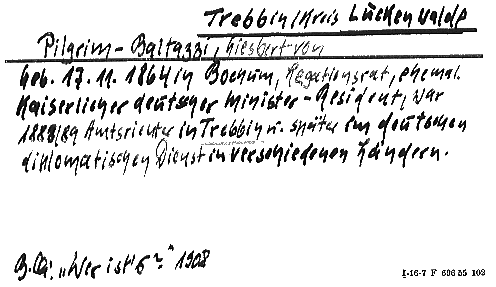 Trebbin/Kreis Luckenwalde
Pilgrim-Baltazzi, Giesbert von
Geb. 17.11.1864 in Bochum, Legationsrat, ehemal.
Kaiserlicher deutscher Minister-Resident, war
1888/89 Amtsrichter in Trebbin u. später im deutschen
diplomatischen Dienst in verschiedenen Ländern.
"Wer ist's?" 1908
I-16-7 F 696 55 103